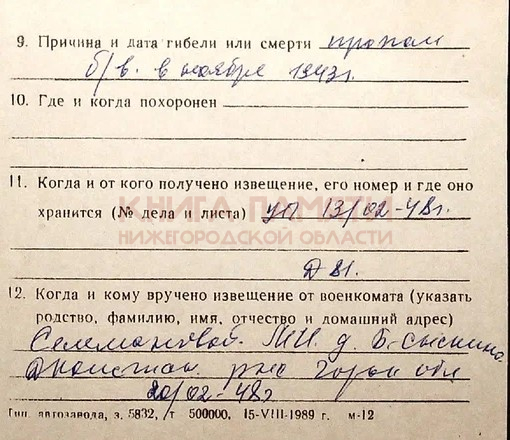 9. Причина и дата гибели или смерти пропал
б/в. в ноябре 1943г.
10. Где и когда похоронен
11. Когда и от кого получено извещение, его номер и где оно
КНИГА ПАМЯТИ
хранится (№ дела и листа) уп 13/02-48г.
НИЖЕГОРОДСКОЙ ОБЛАСТИ
Д 81.
12. Когда и кому вручено извещение от военкомата (указать
родство, фамилию, имя, отчество и домашний адрес)
М.И. д. Б-Сыскино
р-на Горьк обл
20/02-48г
Тип. автозавода, з. 5832, т 500000, 15-VIII-1989 г. м-12